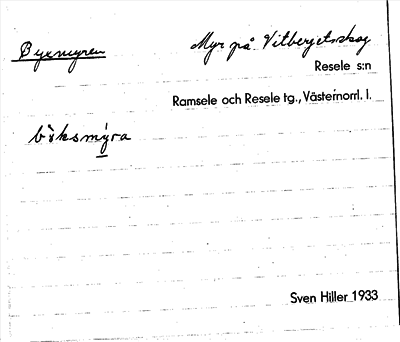 Byxmyren
Myr på Vitbergets skog
Resele s:n
Ramsele och Resele tg., Västernorrl. l.
bỳksmỳra
Sven Hiller 1933